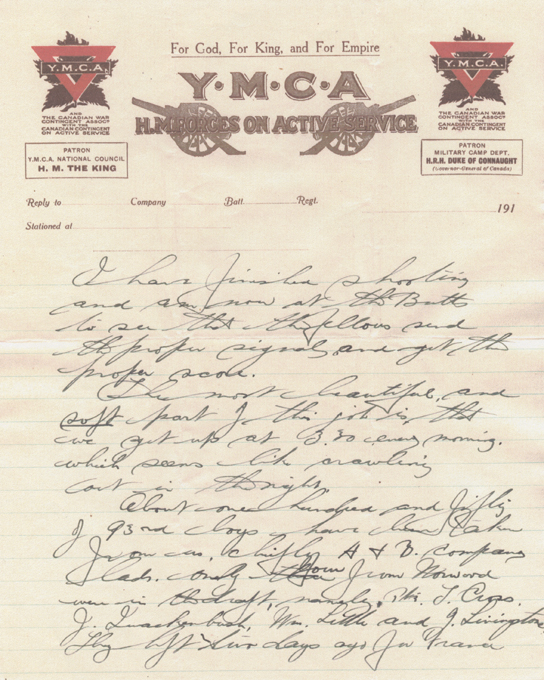 For God, For King, and For Empire
Y.M.C.A.
AND
THE CANADIAN WAR
CONTINGENT ASSOC'N
WITH THE
CANADIAN CONTINGENT
ON ACTIVE SERVICE
PATRON
Y.M.C.A. NATIONAL COUNCIL
H. M. THE KING
Y·M·C·A
H.M. FORCES ON ACTIVE SERVICE
Y.M.C.A.
AND
THE CANADIAN WAR
CONTINGENT ASSOC'N
WITH THE
CANADIAN CONTINGENT
ON ACTIVE SERVICE
PATRON
MILITARY CAMP DEPT,
H.R.H. DUKE OF CONNAUGHT
(Governor-General of Canada)
Reply to Company Batt. Regt. 191
Stationed at
I have finished shooting
and am now at the Butts
to see that the fellows send
the proper signal, and get the
proper score.
The most beautiful, and
soft part of this job is, that
we get up at 3.30 every morning.
which seems like crawling
out in the night.
About one hundred and fifty
of 93rd boys have been taken
from us, chiefly A & B. Company
lads. only four from Norwood
were in the draft, namely, T. Cross.
J. Quackenbush, Wm. Little and J. Livingstone,
They left two days ago for France